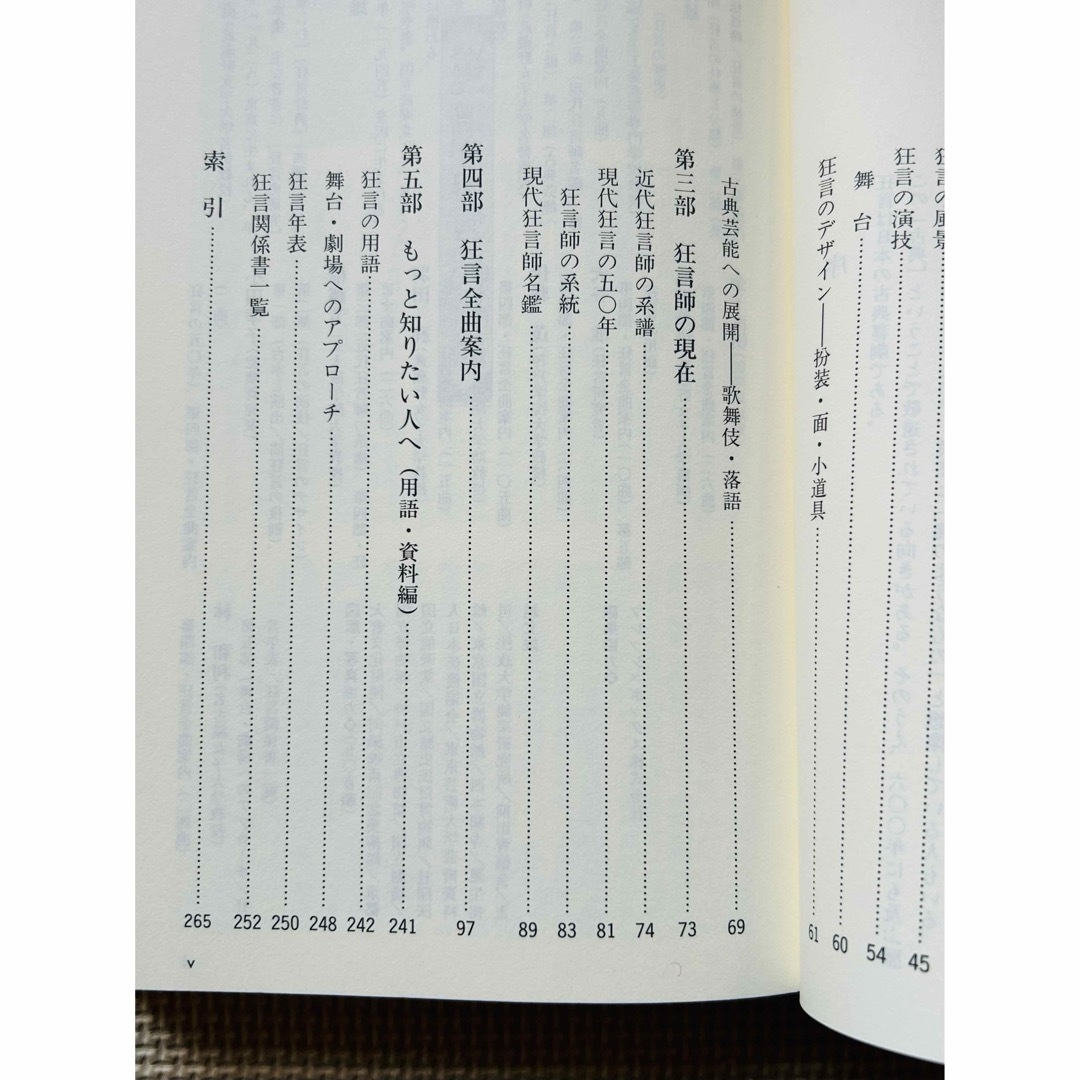 狂言の風景 45
狂言の演技 54
舞台 60
狂言のデザイン——扮装・面・小道具 61
古典芸能への展開——歌舞伎・落語 69
第三部 狂言師の現在 73
近代狂言師の系譜 74
現代狂言の五〇年 81
狂言師の系統 83
現代狂言師名鑑 89
第四部 狂言全曲案内 97
第五部 もっと知りたい人へ(用語・資料編) 241
狂言の用語 242
舞台・劇場へのアプローチ 248
狂言年表 250
狂言関係書一覧 252
索引 265
v